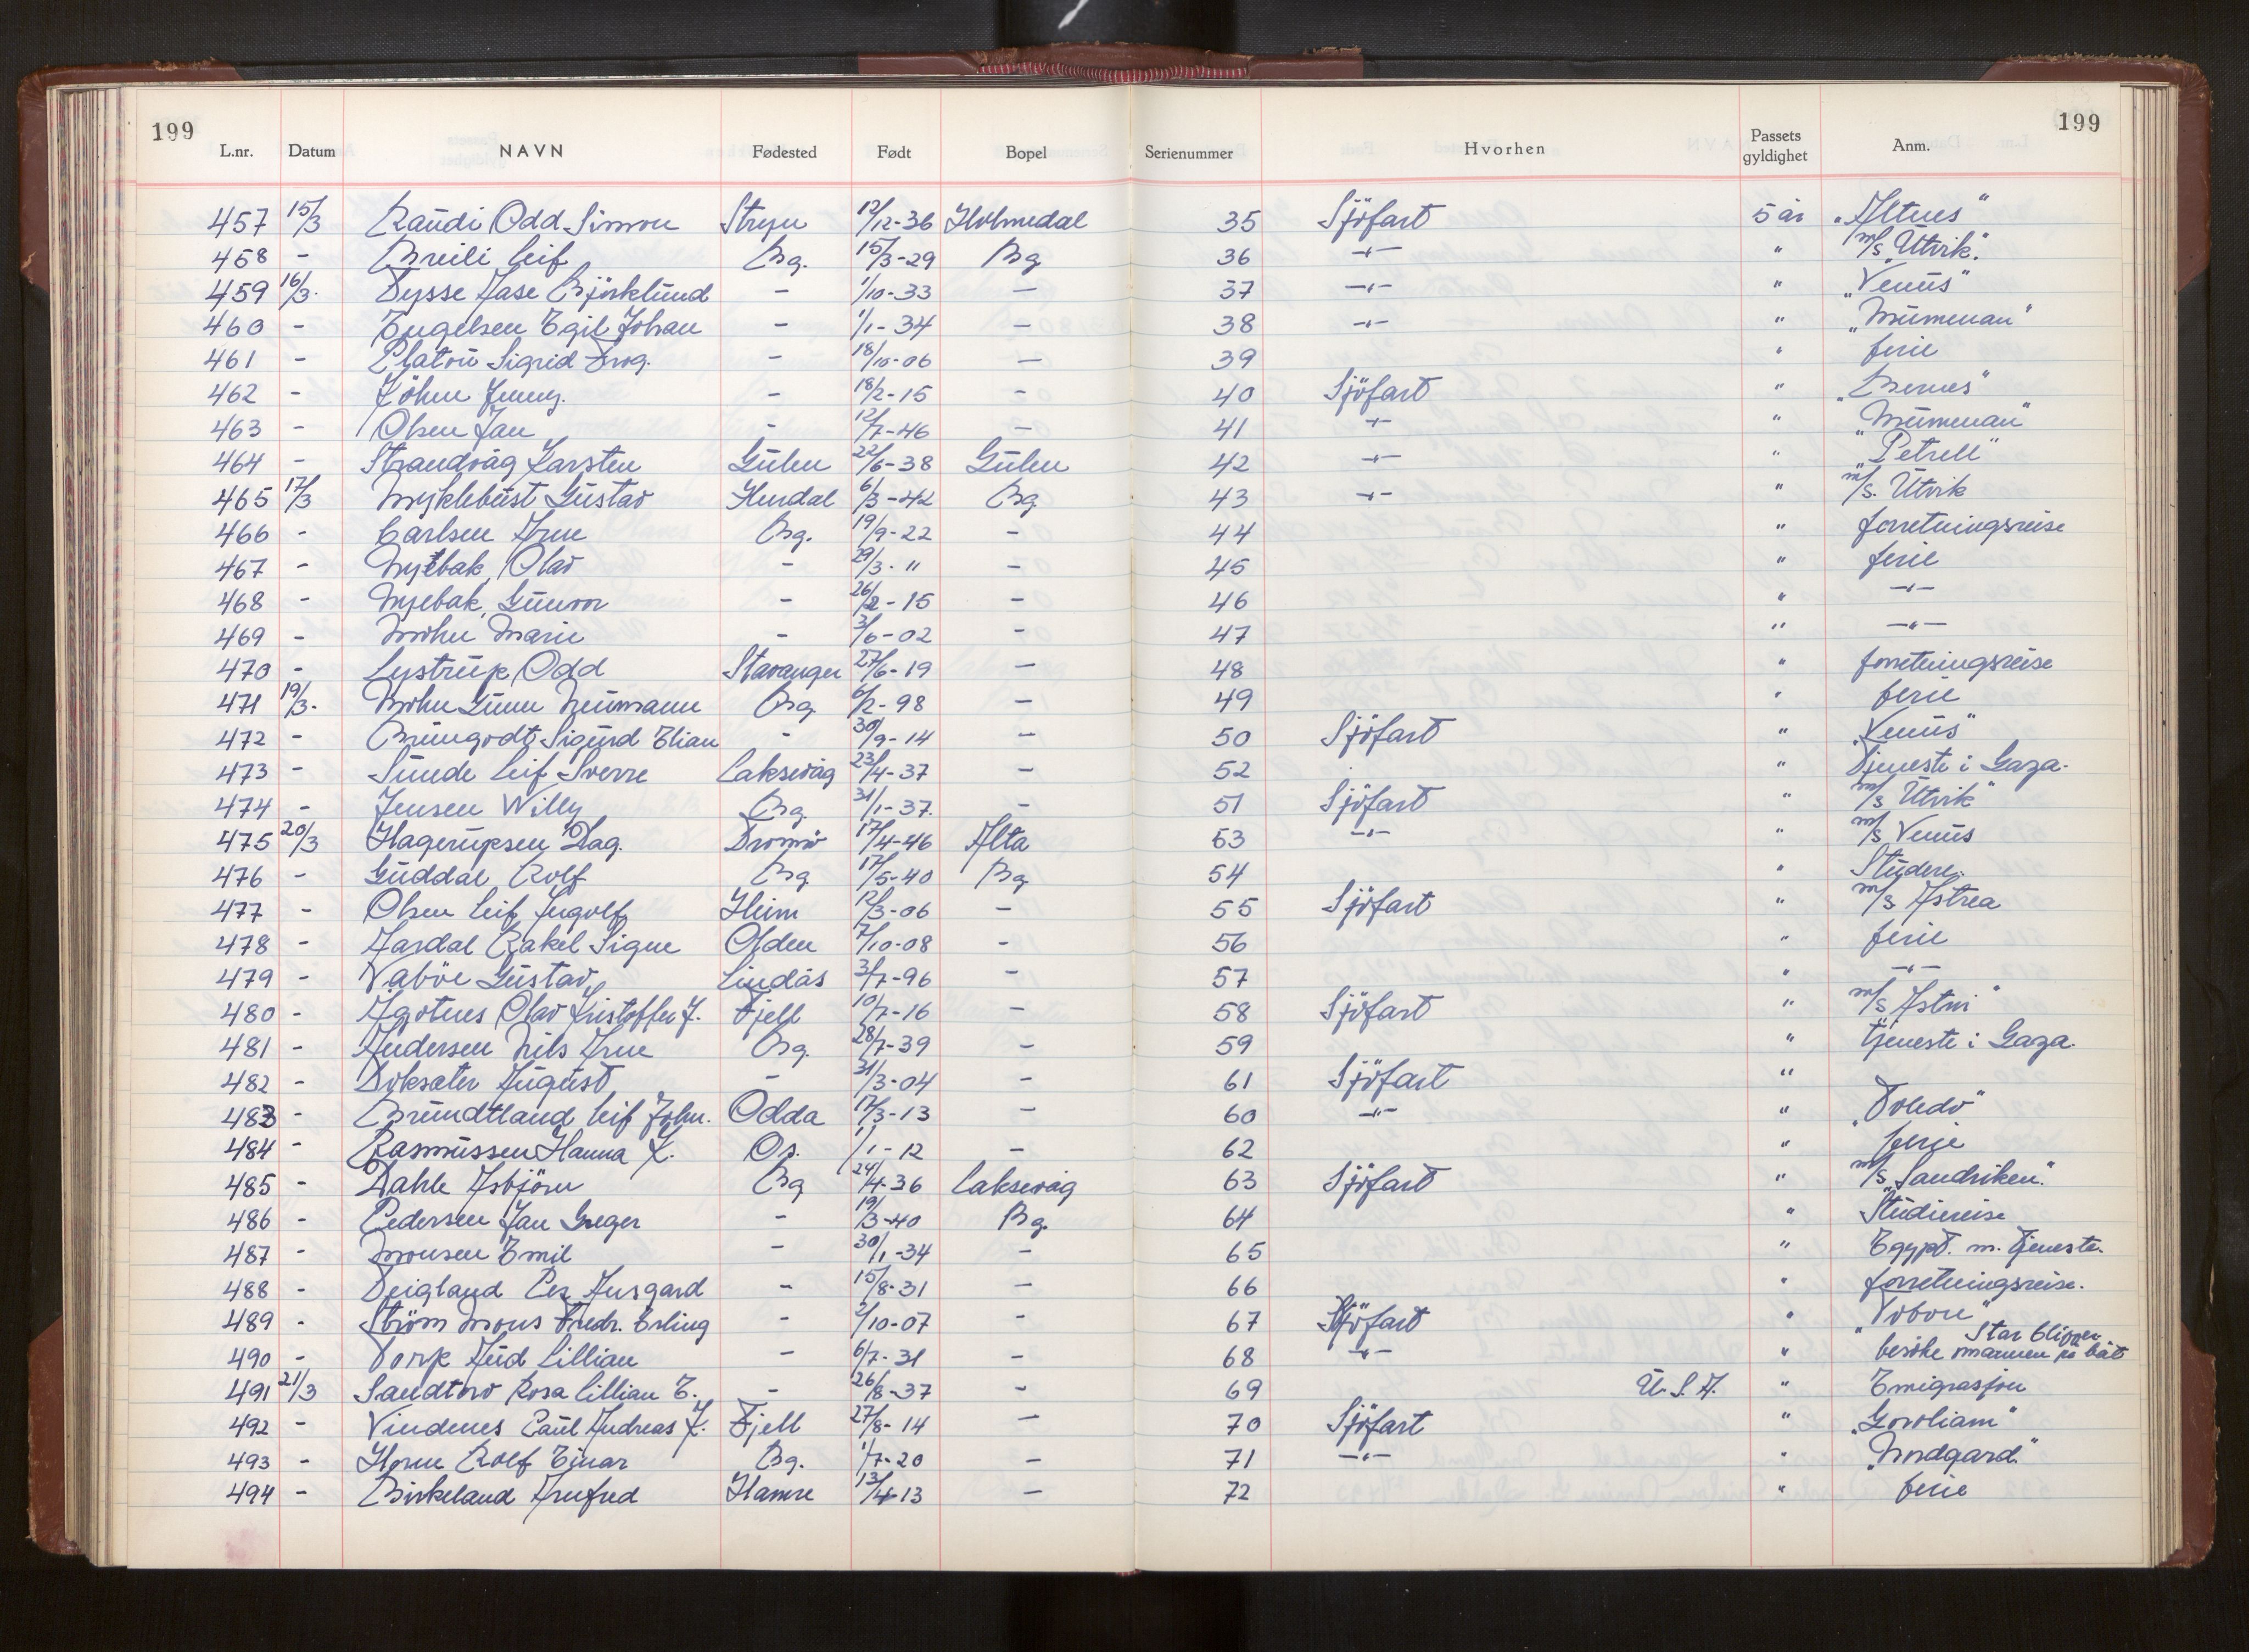 199 199
L.nr. Datum NAVN Fødested Født Bopel Serienummer Hvorhen Passets gyldighet Anm.
457 15/3 Raudi Odd Simon Stryn 12/12-36 Holmedal 35 Sjöfart 5 år "Altnes"
458 - Breili Leif Bg. 15/3-29 Bg 36 -"- " m/s "Utvik".
459 16/3. Tysse Aase Björklund - 1/10-33 - 37 -"- " "Venus"
460 - Engelsen Egil Johan - 1/1-34 - 38 -"- " "Mumenan"
461 - Platou Sigrid Frog. - 18/10-06 - 39 " ferie
462 - Köhn Jenny. - 18/2-15 - 40 Sjöfart " "Bernes"
463 - Olsen Jan - 12/7-46 - 41 -"- " "Mumenan"
464 - Strandvåg Karsten Gulen 22/6-38 Gulen 42 -"- " "Petrell"
465 17/3 Myklebust Gustav Hurdal 6/3-42 Bg 43 -"- " m/s. Utvik
466 - Carlsen Arne Bg. 19/9-22 - 44 " forretningsreise
467 - Myrbak, Olav - 29/3-" - 45 " ferie
468 - Myrbak, Gunvor - 26/2-15 - 46 " -"-
469 - Mohn Marie - 3/6-02 - 47 " -"-
470 - Lystrup, Odd Stavanger 27/6-19 - 48 " forretningsreise
471 19/3. Mohn Gunn Neumann Bg. 6/2-98 - 49 " ferie
472 - Brungodt, Sigurd Elian - 30/9-14 - 50 Sjöfart " "Venus"
473 - Sunde Leif Sverre Laksevåg 23/4-37 - 52 " Tjeneste i Gaza.
474 - Jensen Willy Bg. 31/1-37. - 51 Sjöfart " m/s "Utvik"
475 20/3 Hagerupsen Dag. Tromsö 17/4-46 Alta 53 -"- " m/s Venus
476 - Guddal Rolf Bg 17/5-40 Bg. 54 " Studere.
477 - Olsen Leif Ingolf Heim 12/3-06 - 55 Sjöfart " m/s Astrea
478 - Aardal Rakel Signe Olden 7/10-08 - 56 " ferie
479 - Vaböe Gustav Lindås 3/7-96 - 57 " -"-
480 - Ågotnes Olav Kristoffer J. Fjell 10/7-16 - 58 Sjöfart " m/s Astri"
481 - Andersen Nils Arne Bg. 28/7-39 - 59 " tjeneste i Gaza.
482 - Toksæter August - 31/3-04 - 61 Sjöfart "
483 - Brundtland Leif John. Odda 17/3-13 - 60 -"- " "Toledo"
484 - Rasmussen Hanna K. Os. 1/1-12 - 62 " ferie
485 - Dahle Asbjörn Bg 24/4-36 Laksevåg 63 Sjöfart " m/s "Sandviken".
486 - Pedersen Jan Greger - 19/3-40 Bg. 64 " Studiereise
487 - Monsen Emil - 30/1-34 - 65 " Egypt. m. tjeneste.
488 - Teigland Per Ausgard - 15/8-31 - 66 " forretningsreise.
489 - Ström Mons Fredr. Erling - 2/10-07 - 67 Sjöfart " "Vobore"
490 - Torp Aud Lillian - 6/7-31 - 68 -"- " Star Clipper besöke mannen på båt
491 21/3 Sandtorv Rosa Lillian E. - 26/8-37 - 69 U.S.A. " Emigrasjon
492 - Vindenes Paul Andreas K. Fjell 27/8-14 - 70 Sjöfart " "Govoliam"
493 - Horne Rolf Einar Bg. 1/7-20 - 71 -"- " "Nordgard"
494 - Birkeland Arnfred Hamre 13/4-13 - 72 " ferie